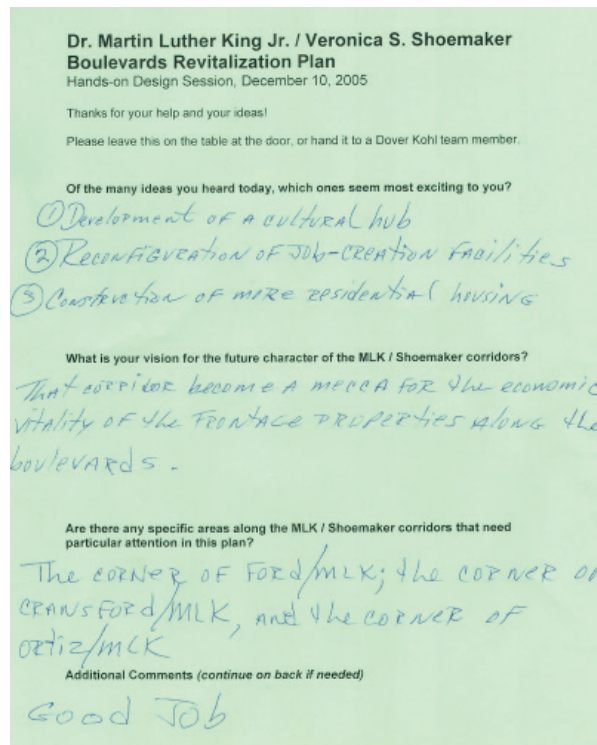 Dr. Martin Luther King Jr. / Veronica S. Shoemaker
Boulevards Revitalization Plan
Hands-on Design Session, December 10, 2005
Thanks for your help and your ideas!
Please leave this on the table at the door, or hand it to a Dover Kohl team member.
Of the many ideas you heard today, which ones seem most exciting to you?
① Development of a cultural hub
② Reconfiguration of Job-creation facilities
③ Construction of more residential housing
What is your vision for the future character of the MLK / Shoemaker corridors?
That corridor become a mecca for the economic
vitality of the frontage properties along the
boulevards.
Are there any specific areas along the MLK / Shoemaker corridors that need
particular attention in this plan?
The corner of Ford/MLK; the corner of
Cransford/MLK, and the corner of
Ortiz/MLK
Additional Comments (continue on back if needed)
Good Job